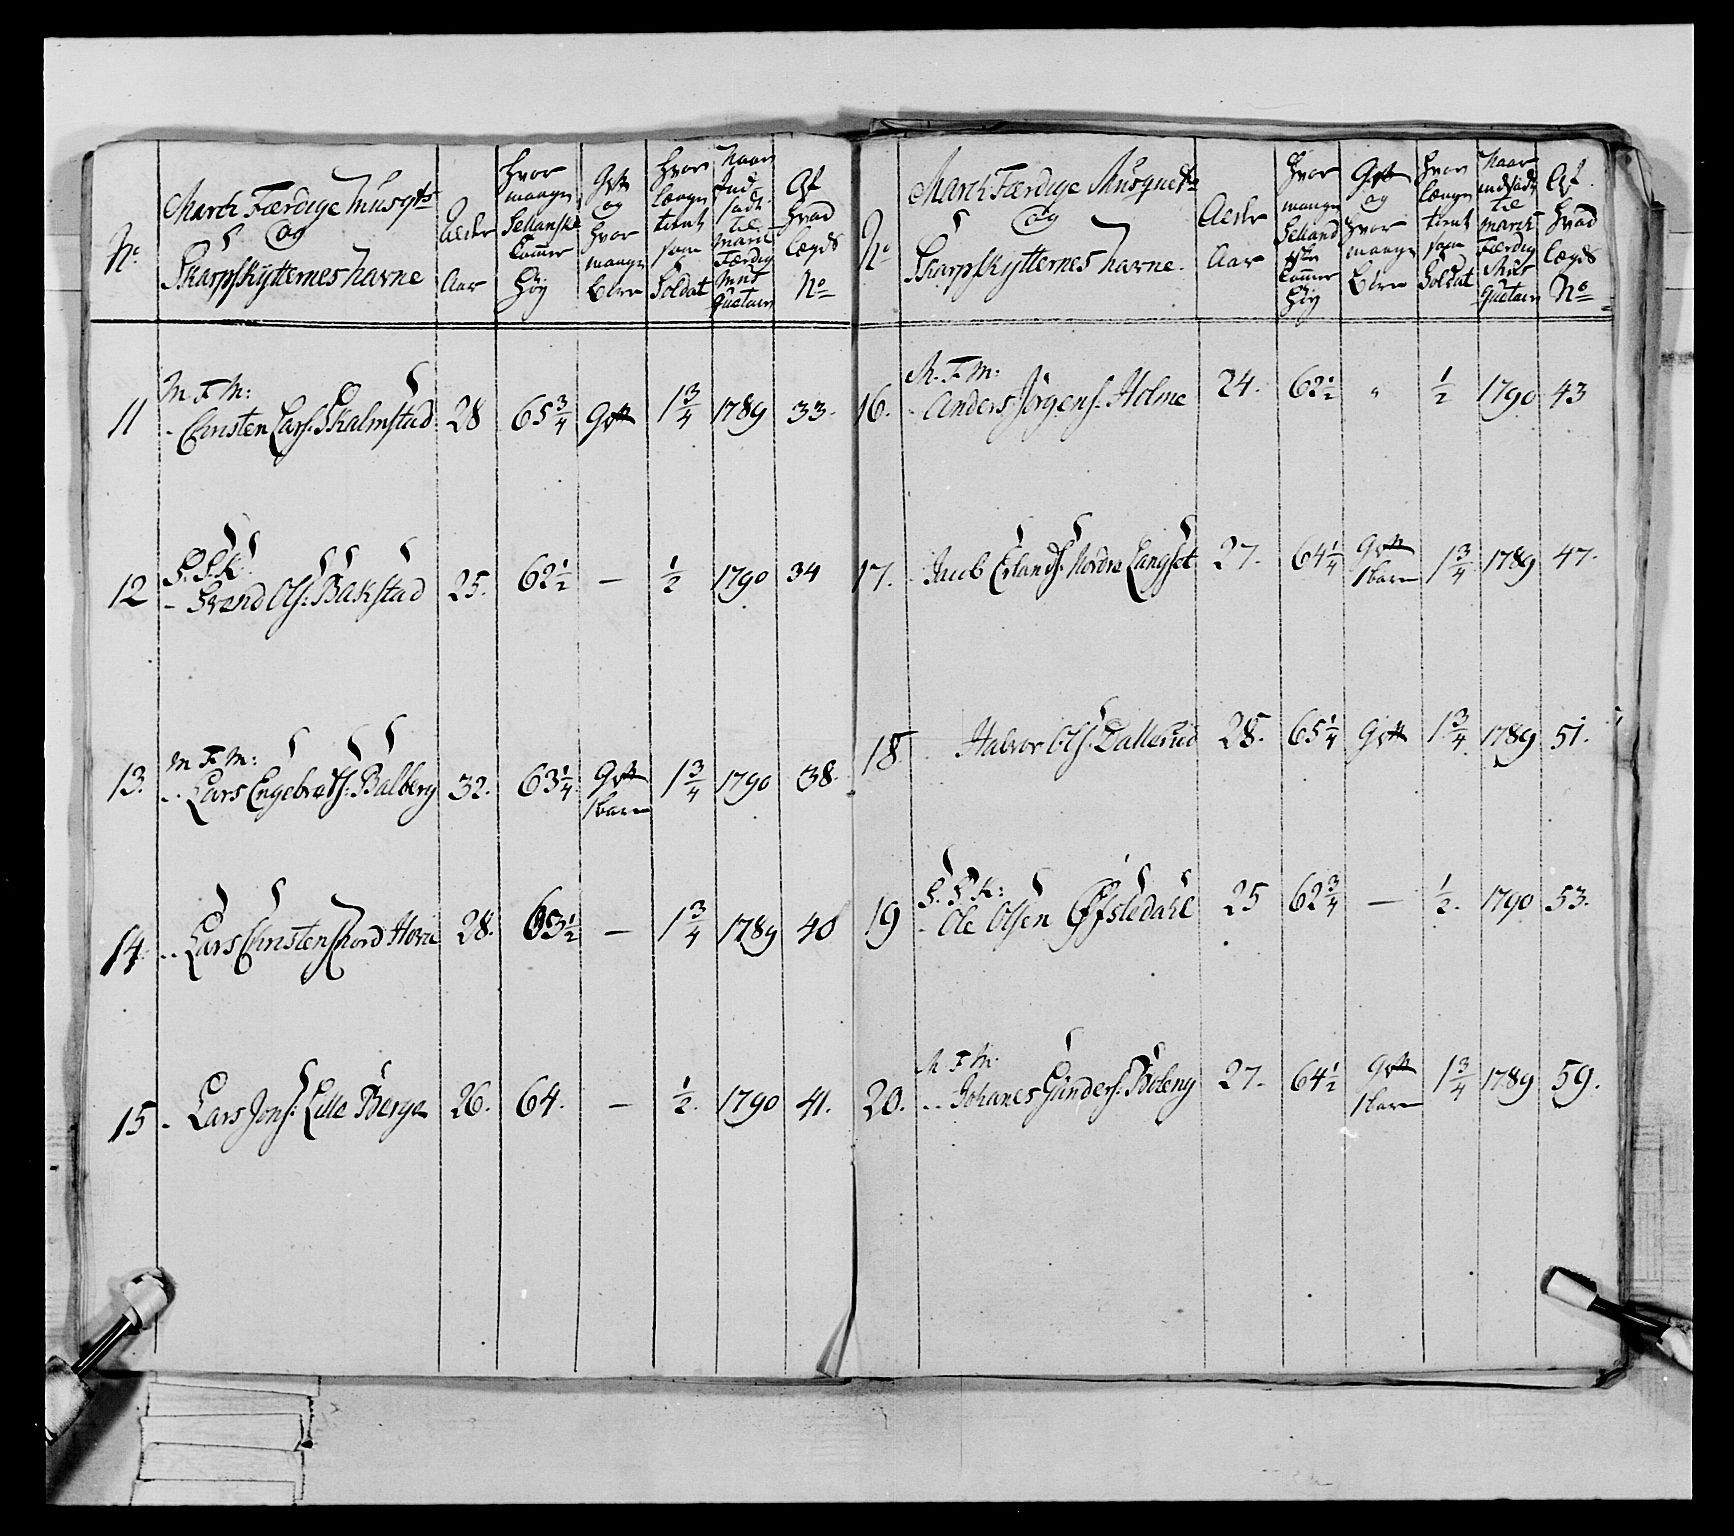 No
March Færdige Musqts
og
Skarpskytternes Navne
Alder
Aar
Hvor
mange
Sellanske
Tommer
Høy
Gvt
og
Hvor
mange
Børn
Hvor
længe
tient
som
Soldat
Naar
Ind
sadt
til
March
Færdig
Mus
quetair
Af
Hvad
Lægds
No
11 M. F. M:
- Christen Lars. Skalmstad 28 65 3/4 Gvt 1 3/4 1789 33.
12 S. S. K:
- Svend Ols: Bakstad 25. 62 1/2 — 1/2 1790 34
13. M. F. M:
- Lars Engebrets: Balberg 32. 63 1/4 Gvt 1 3/4 1790 38.
1 barn
14. - Lars Christens Nord Hove 28. 63 1/2 — 1 3/4 1789 40
15 - Lars Jons: Lille Berge 26. 64. — 1/2. 1790 41.
No
March Færdige Musquetr
og
Skarpskytternes Navne.
Alder
Aar
Hvor
mange
Selland
ske
Tommer
Høy
Gvt
og
Hvor
mange
Børn
Hvor
længe
tient
som
Soldat
Naar
indsadt
til
March
Færdig
Mus
quetair
Af
Hvad
Lægds
No
16. M. F. M:
- Anders Jørgens. Holme 24. 62 1/2 " 1/2 1790 43
17. - Jacob Erlands. Nordre Langset 27. 64 1/4 Gvt 1 3/4 1789 47.
1 barn
18 Halvor Ols. Dallerud 28. 65 1/4 Gvt 1 3/4 1789 51.
19 S. S. K:
- Ole Olsen Øfsledahl 25 62 3/4 — 1/2. 1790 53.
20. M. F. M.
- Johanes Gunders. Boleng 27. 64 1/2 Gvt 1 3/4 1789 59.
1 barn